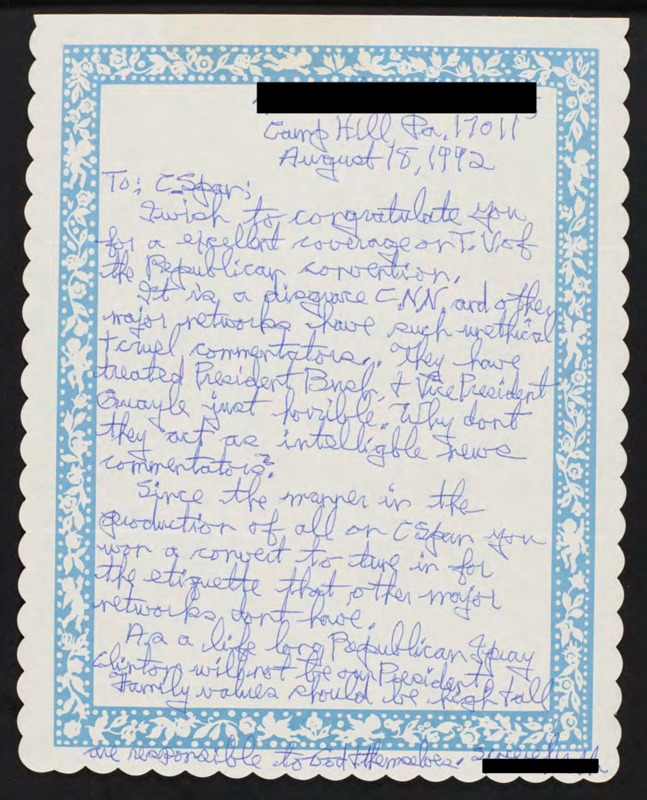 Camp Hill Pa. 17011
August 18, 1992
To; CSpan;
I wish to congratulate you
for a excellent coverage on T.V of
the Republican convention.
It is a disgrace C.N.N and other
major networks have such unethical
+ cruel commentators. They have
treated President Bush + Vice President
Quayle just horrible. Why dont
they act as intelligble news
commentators?
Since the manner in the
production of all on CSpan you
won a convert to tune in for
the etiquette that other major
networks dont have.
As a life long Republican I pray
Clinton will not be our President.
Family values should be high + all
are responsible to God + themselves. Sincerely